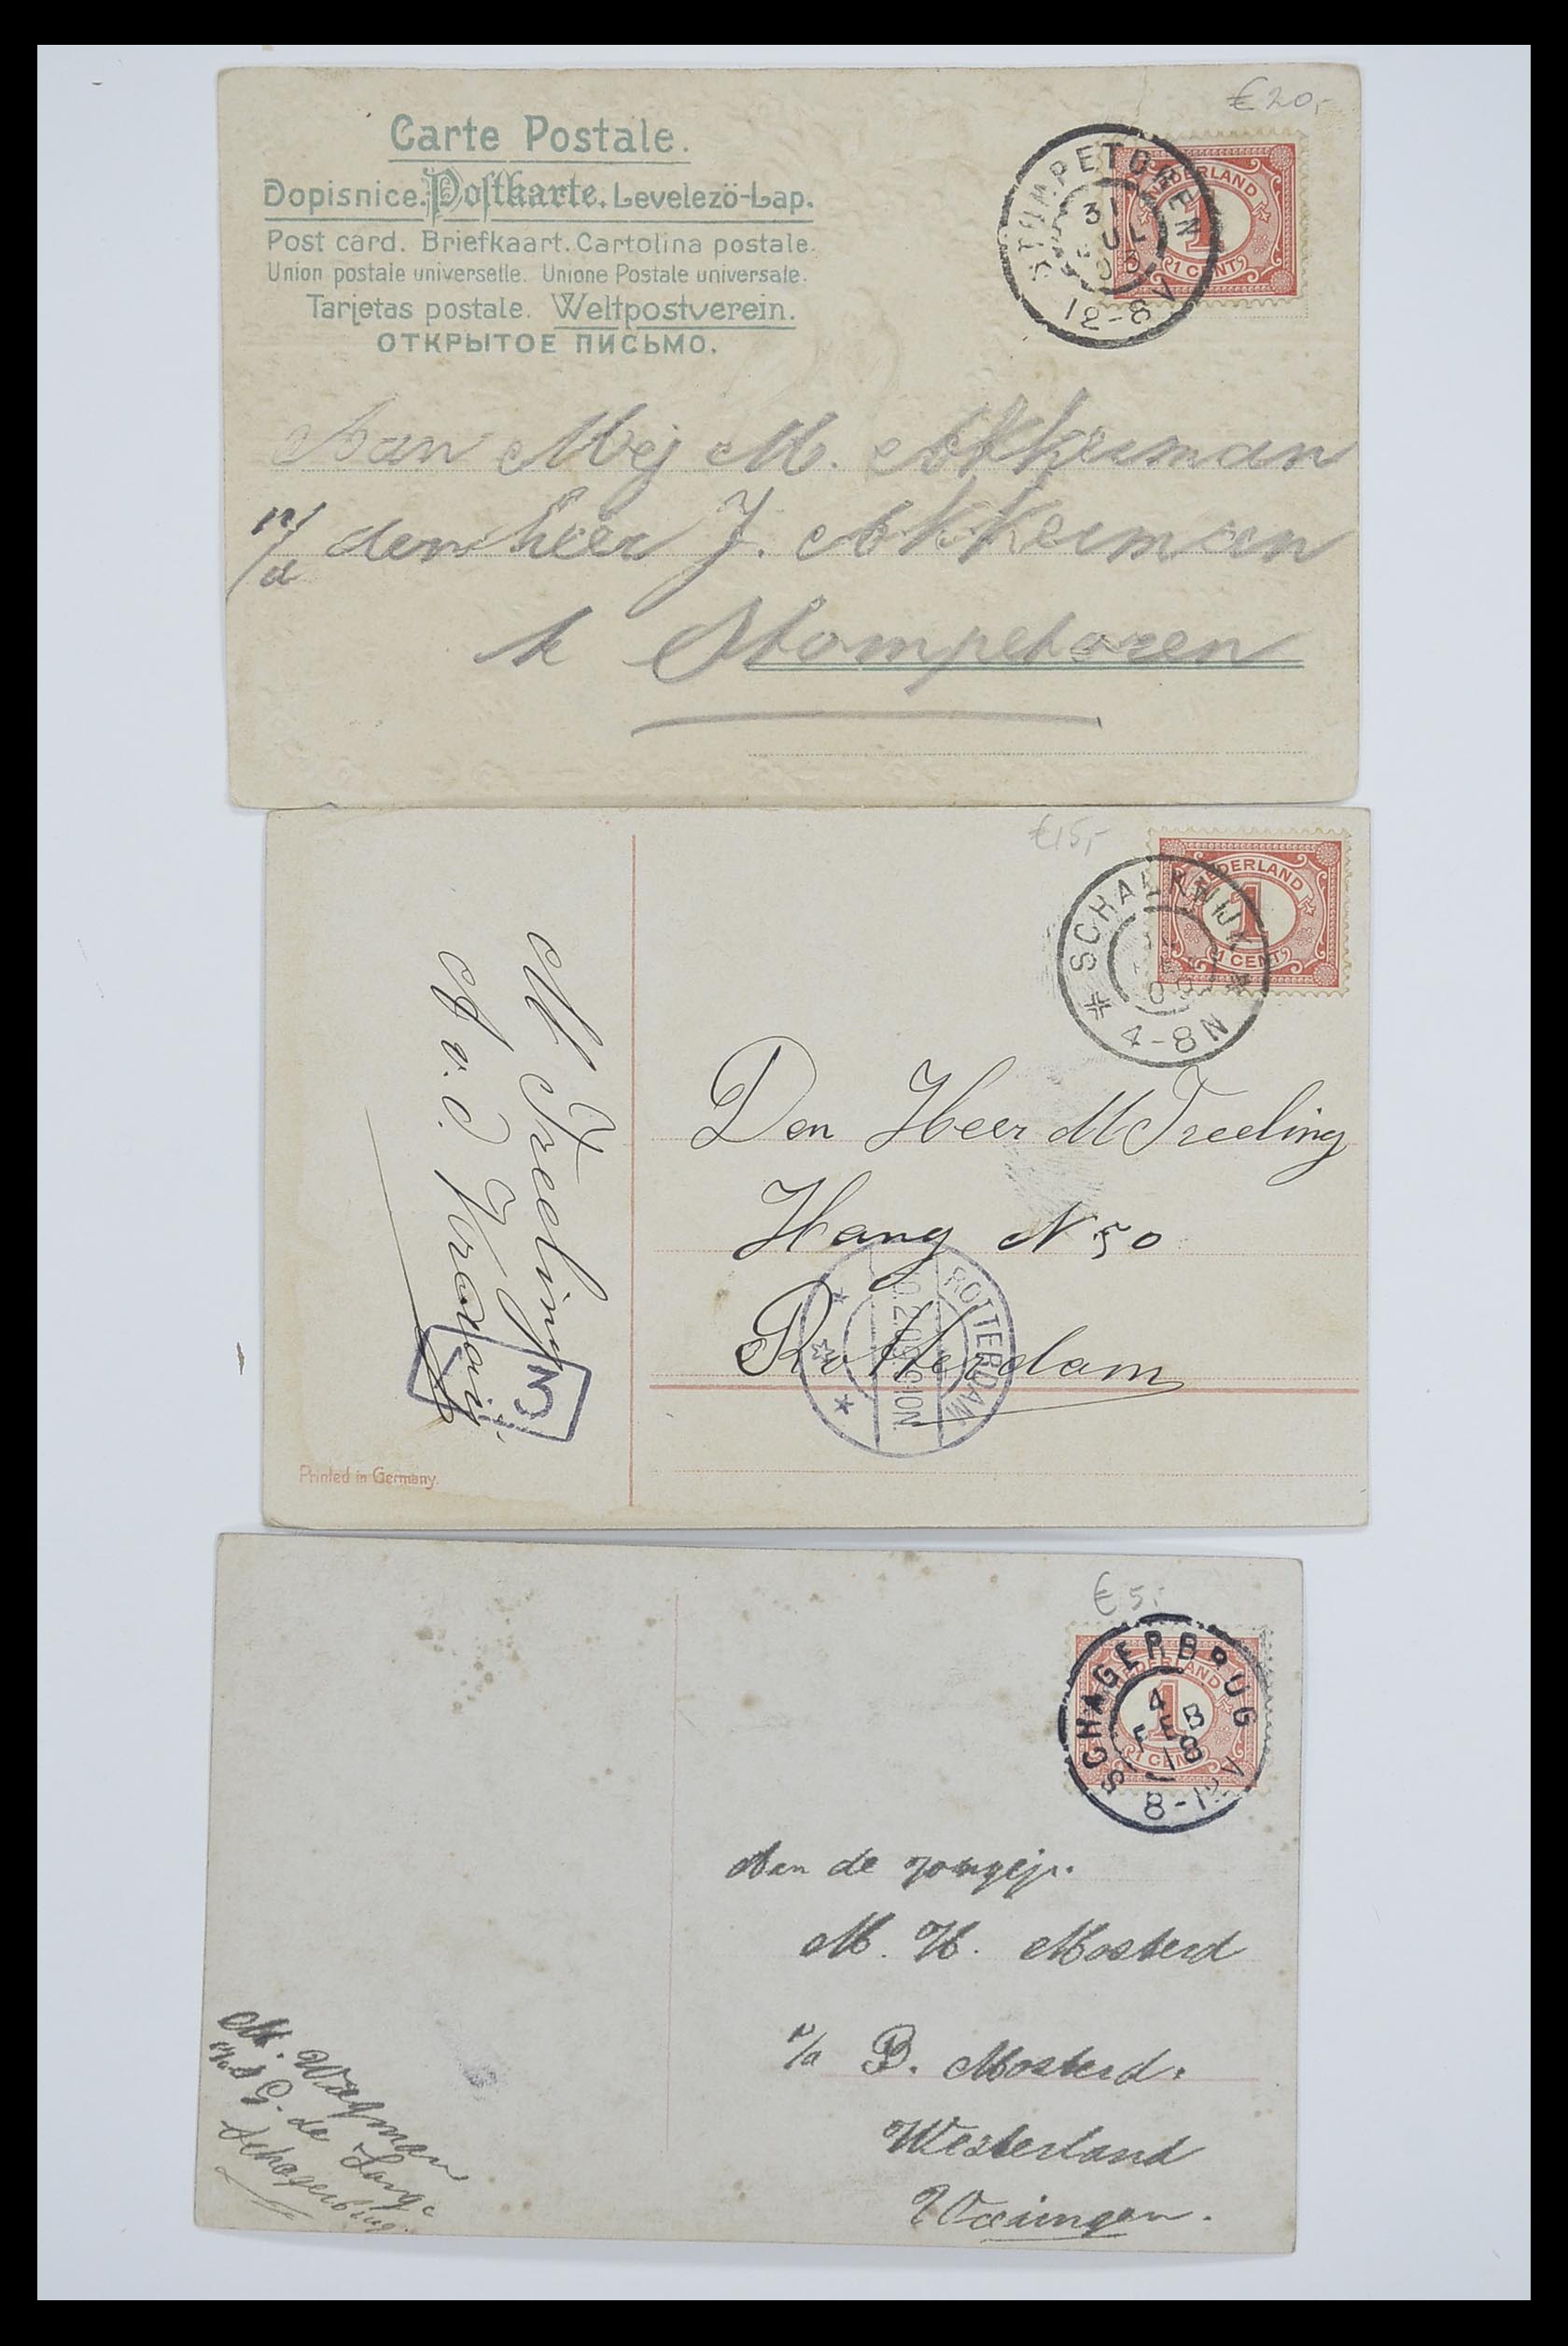 €20,-
Carte Postale.
Dopisnice. Postkarte. Levelezö-Lap.
Post card. Briefkaart. Cartolina postale.
Union postale universelle. Unione Postale universale.
Tarjetas postale. Weltpostverein.
ОТКРЫТОЕ ПИСЬМО.
STOMPETOREN
31
JUL
03
12-8V
NEDERLAND
1
1 CENT
Aan Mej M. Akkerman
p/a den heer J. Akkerman
te Stompetoren
€15,-
NEDERLAND
1
1 CENT
SCHALKWIJK
4-8N
Den Heer M Treeling
Hang N 50
Rotterdam
ROTTERDAM
M Treeling
3
Printed in Germany.
€5,-
NEDERLAND
1
1 CENT
SCHAGERBRUG
4
FEB
18
8-12V
Aan de jongej.
M. H. Mosterd
p/a B. Mosterd.
Westerland
Wieringen.
M. Wagman
G. de Lange
Schagerbrug.